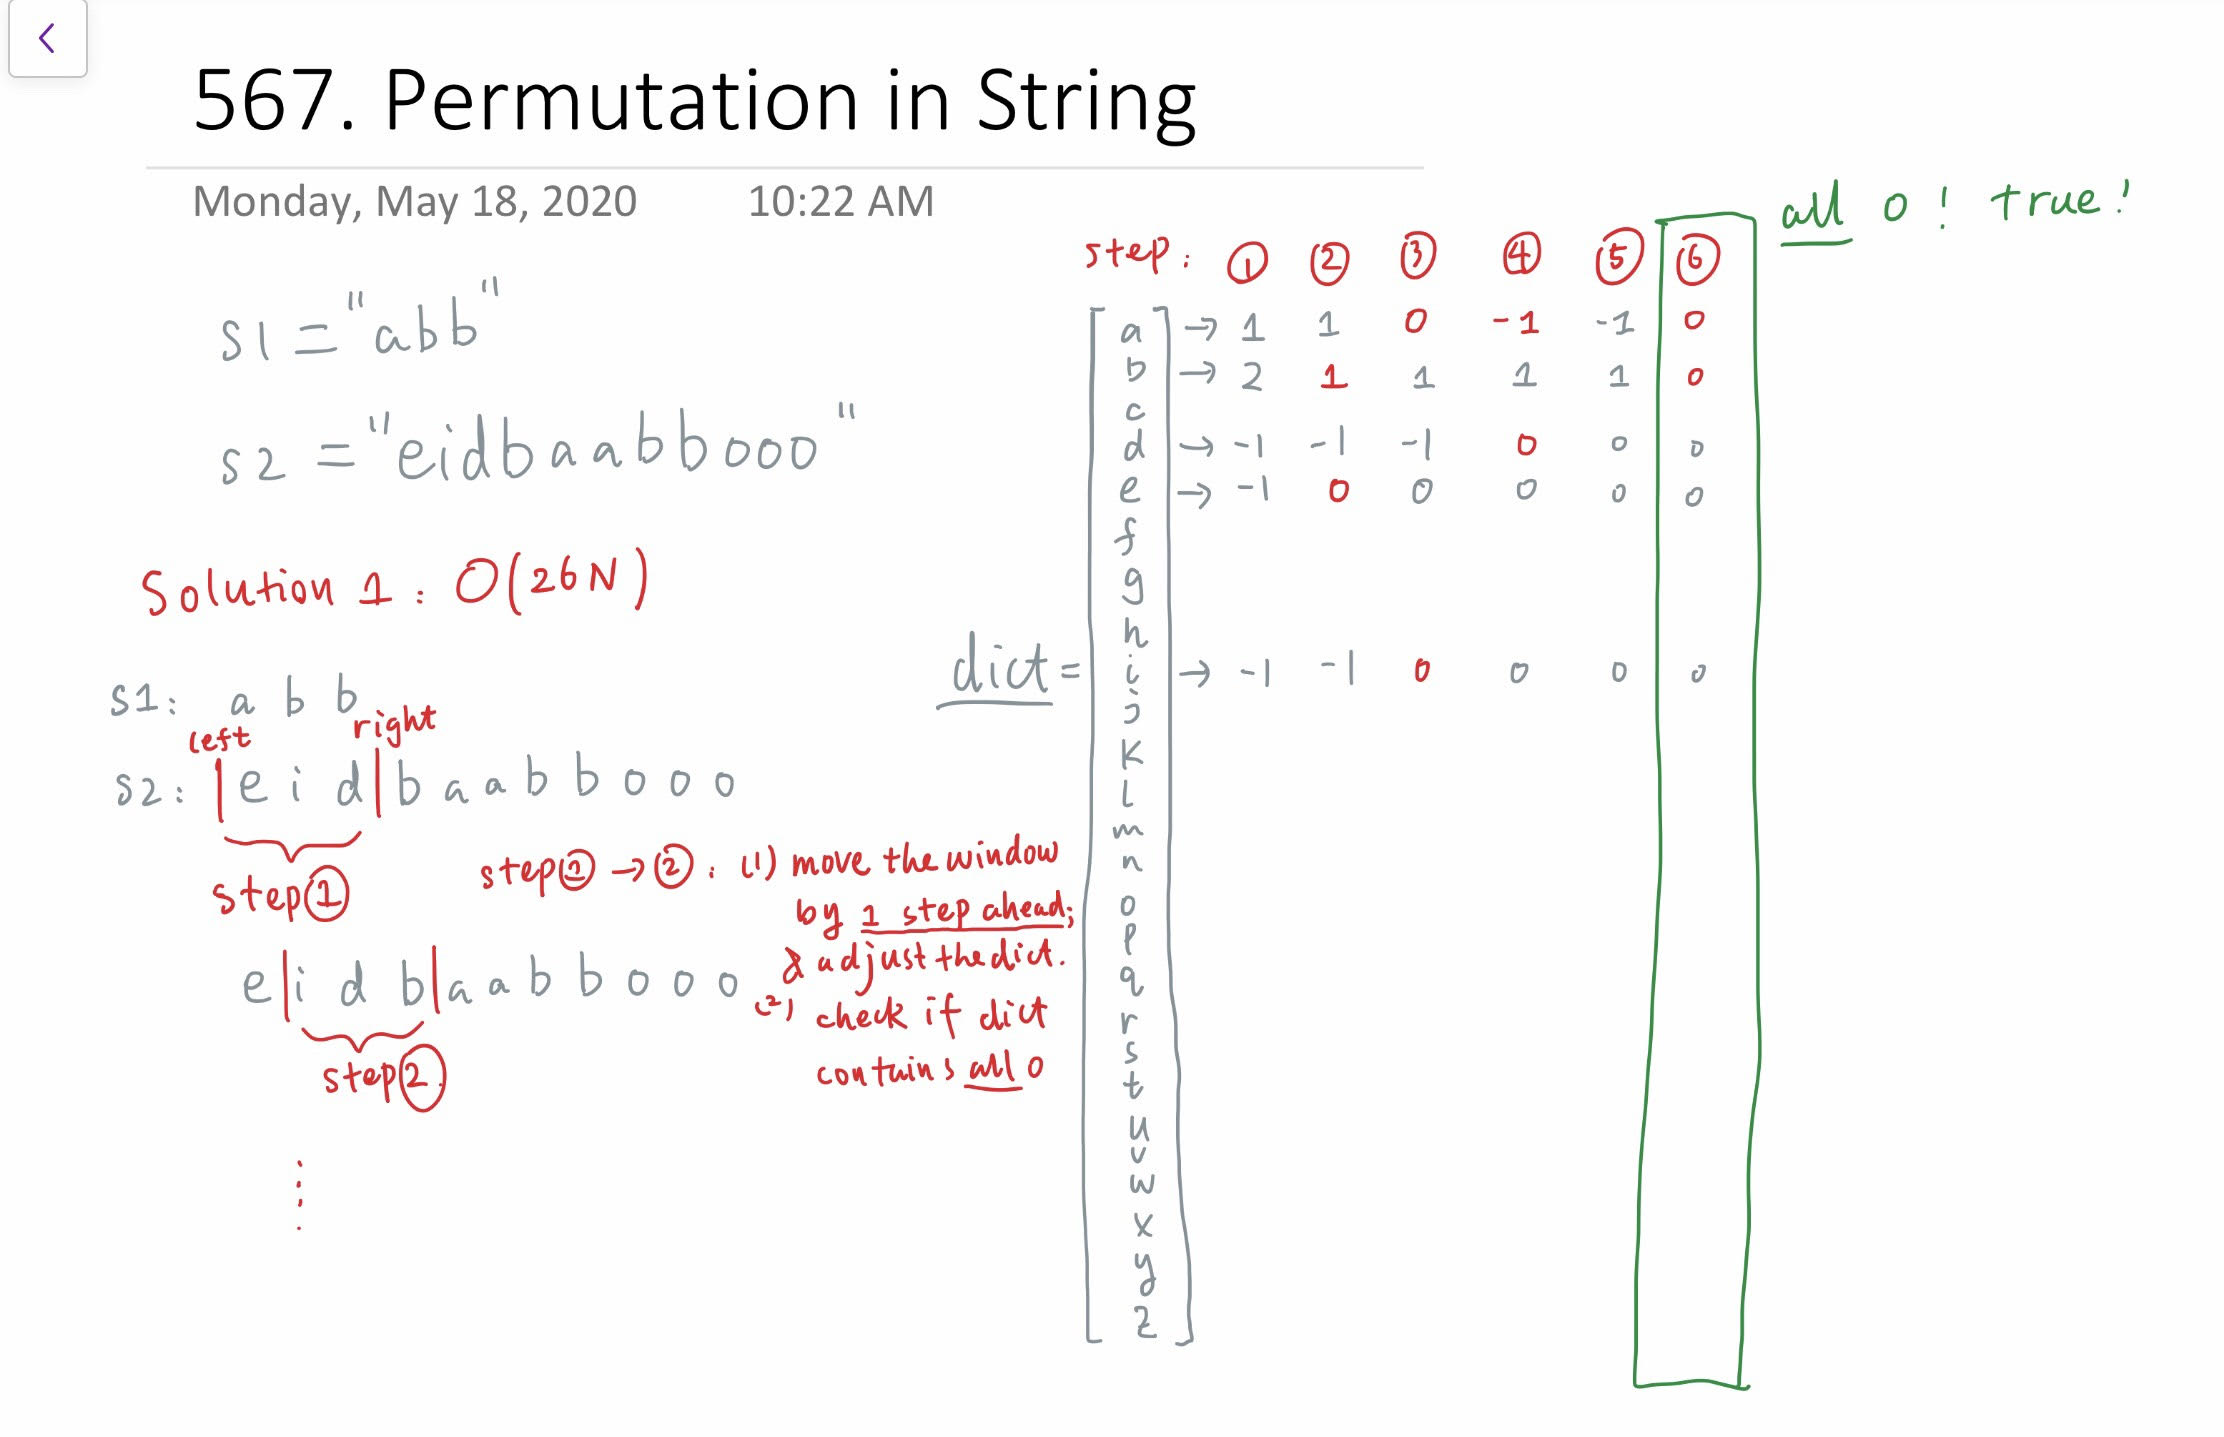 567. Permutation in String
Monday, May 18, 2020 10:22 AM
s1 = "abb"
s2 = "eidbaabbooo"
Solution 1: O(26N)
s1: a b b
left right
s2: |e i d|b a a b b o o o
step ①
e|i d b|a a b b o o o
step ②
step ① → ②: (1) move the window
by 1 step ahead;
& adjust the dict.
(2) check if dict
contains all 0
all 0! true!
step: ① ② ③ ④ ⑤ ⑥
dict =
a → 1 1 0 -1 -1 0
b → 2 1 1 1 1 0
c
d → -1 -1 -1 0 0 0
e → -1 0 0 0 0 0
f
g
h
i → -1 -1 0 0 0 0
j
k
l
m
n
o
p
q
r
s
t
u
v
w
x
y
z